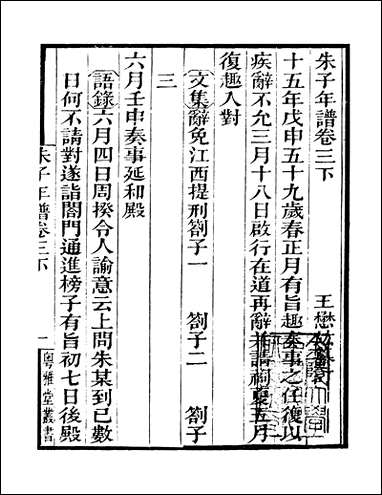 朱子年譜卷三下
王懋竑
十五年戊申五十九歲春正月有旨趣奏事之任復以
疾辭不允三月十八日啟行在道再辭兼請祠夏五月
復趣入對
文集辭免江西提刑劄子一　劄子二　劄子
三
六月壬申奏事延和殿
語錄六月四日周揆令人諭意云上問朱某到已數
日何不請對遂詣閤門通進榜子有旨初七日後殿
朱子年譜卷三下
一
粵雅堂叢書